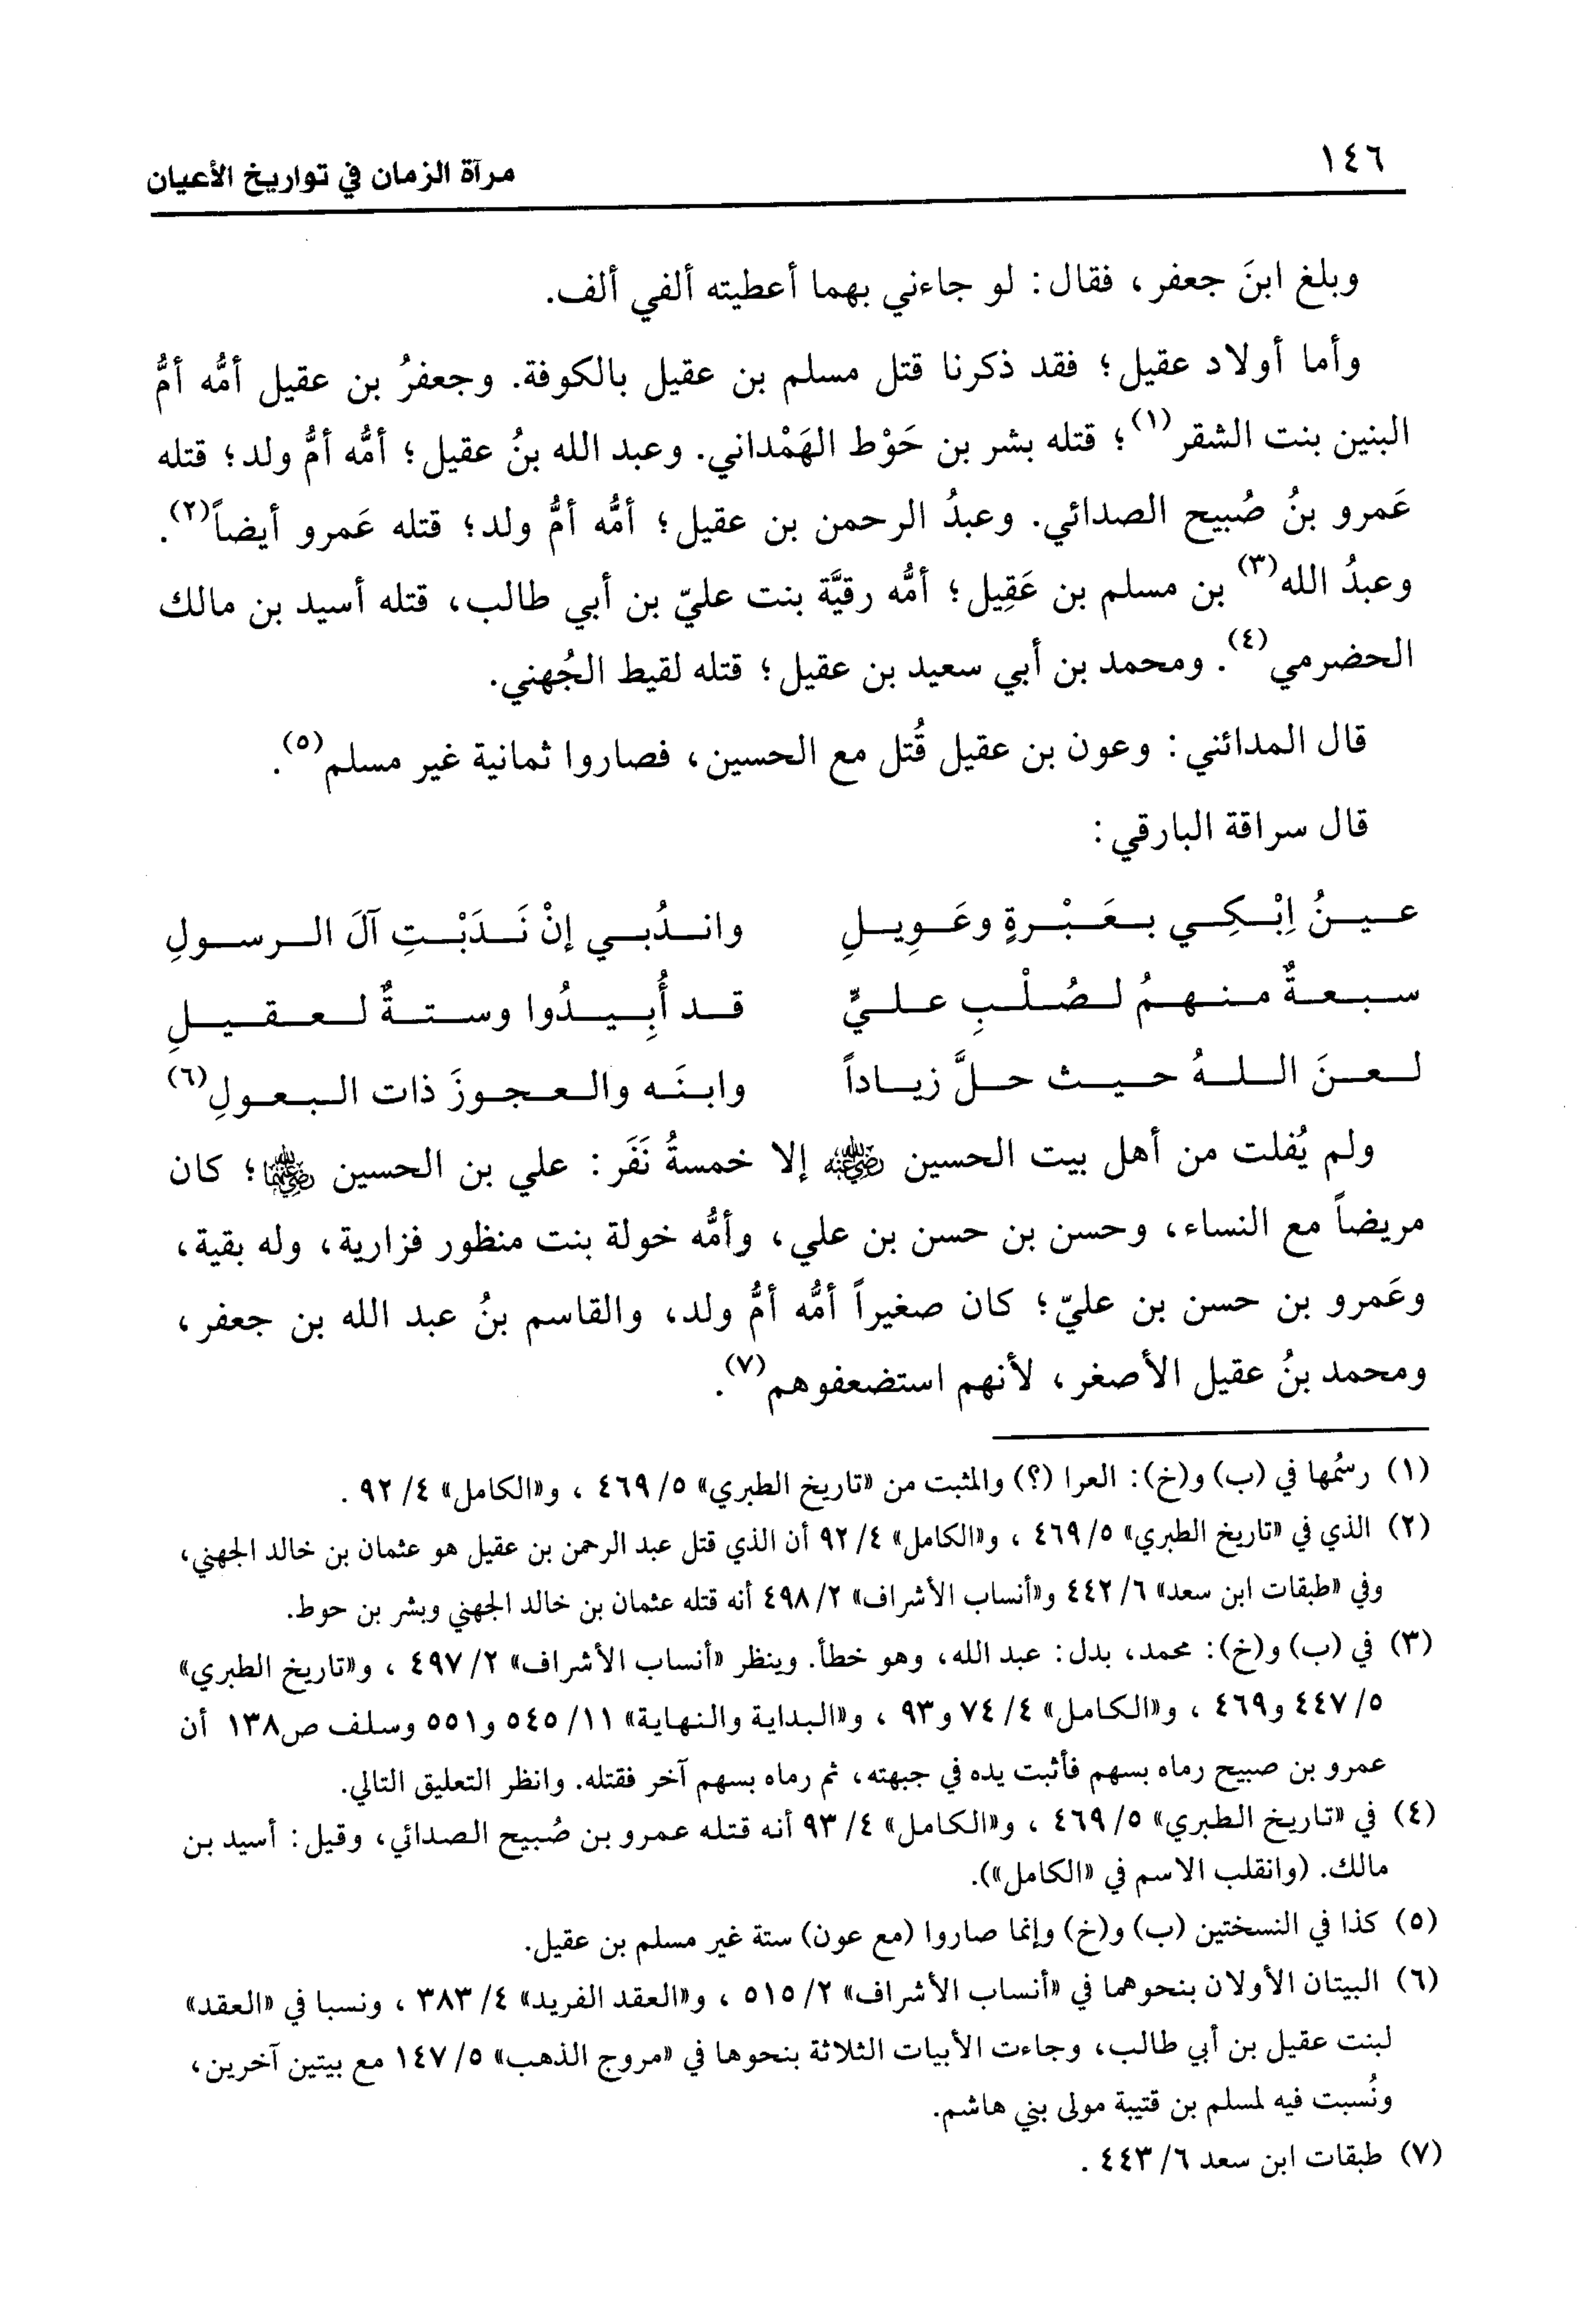 ١٤٦
مرآة الزمان في تواريخ الأعيان
وبلغ ابنَ جعفر، فقال: لو جاءني بهما أعطيته ألفي ألف.
وأما أولاد عقيل؛ فقد ذكرنا قتل مسلم بن عقيل بالكوفة. وجعفرُ بن عقيل أمُّه أمُّ
البنين بنت الشقر(١)؛ قتله بشر بن حَوْط الهَمْداني. وعبد الله بنُ عقيل؛ أمُّه أمُّ ولد؛ قتله
عَمرو بنُ صُبيح الصدائي. وعبدُ الرحمن بن عقيل؛ أمُّه أمُّ ولد؛ قتله عَمرو أيضاً(٢).
وعبدُ الله(٣) بن مسلم بن عَقِيل؛ أمُّه رقيَّة بنت عليّ بن أبي طالب، قتله أسيد بن مالك
الحضرمي(٤). ومحمد بن أبي سعيد بن عقيل؛ قتله لقيط الجُهني.
قال المدائني: وعون بن عقيل قُتل مع الحسين، فصاروا ثمانية غير مسلم(٥).
قال سراقة البارقي:
عينُ اِبْكِي بعَبْرةٍ وعَوِيلِ واندُبي إنْ نَدَبْتِ آلَ الرسولِ
سبعةٌ منهمُ لصُلْبِ عليٍّ قد أُبِيدُوا وستةٌ لعقيلِ
لعنَ اللهُ حيث حلَّ زياداً وابنَه والعجوزَ ذات البعولِ(٦)
ولم يُفلت من أهل بيت الحسين رضي الله عنه إلا خمسةُ نَفَر: علي بن الحسين رضي الله عنهما؛ كان
مريضاً مع النساء، وحسن بن حسن بن علي، وأمُّه خولة بنت منظور فزارية، وله بقية،
وعَمرو بن حسن بن عليّ؛ كان صغيراً أمُّه أمُّ ولد، والقاسم بنُ عبد الله بن جعفر،
ومحمد بنُ عقيل الأصغر، لأنهم استضعفوهم(٧).
(١) رسْمُها في (ب) و(خ): العرا (؟) والمثبت من «تاريخ الطبري» ٥/ ٤٦٩ ، و«الكامل» ٤/ ٩٢ .
(٢) الذي في «تاريخ الطبري» ٥/ ٤٦٩ ، و«الكامل» ٤/ ٩٢ أن الذي قتل عبد الرحمن بن عقيل هو عثمان بن خالد الجهني،
وفي «طبقات ابن سعد» ٦/ ٤٤٢ و«أنساب الأشراف» ٢/ ٤٩٨ أنه قتله عثمان بن خالد الجهني وبشر بن حوط.
(٣) في (ب) و(خ): محمد، بدل: عبد الله، وهو خطأ. وينظر «أنساب الأشراف» ٢/ ٤٩٧ ، و«تاريخ الطبري»
٥/ ٤٤٧ و٤٦٩ ، و«الكامل» ٤/ ٧٤ و٩٣ ، و«البداية والنهاية» ١١/ ٥٤٥ و٥٥١ وسلف ص١٣٨ أن
عمرو بن صبيح رماه بسهم فأثبت يده في جبهته، ثم رماه بسهم آخر فقتله. وانظر التعليق التالي.
(٤) في «تاريخ الطبري» ٥/ ٤٦٩ ، و«الكامل» ٤/ ٩٣ أنه قتله عمرو بن صُبيح الصدائي، وقيل: أسيد بن
مالك. (وانقلب الاسم في «الكامل»).
(٥) كذا في النسختين (ب) و(خ) وإنما صاروا (مع عون) ستة غير مسلم بن عقيل.
(٦) البيتان الأولان بنحوهما في «أنساب الأشراف» ٢/ ٥١٥ ، و«العقد الفريد» ٤/ ٣٨٣ ، ونسبا في «العقد»
لبنت عقيل بن أبي طالب، وجاءت الأبيات الثلاثة بنحوها في «مروج الذهب» ٥/ ١٤٧ مع بيتين آخرين،
ونُسبت فيه لمسلم بن قتيبة مولى بني هاشم.
(٧) طبقات ابن سعد ٦/ ٤٤٣ .